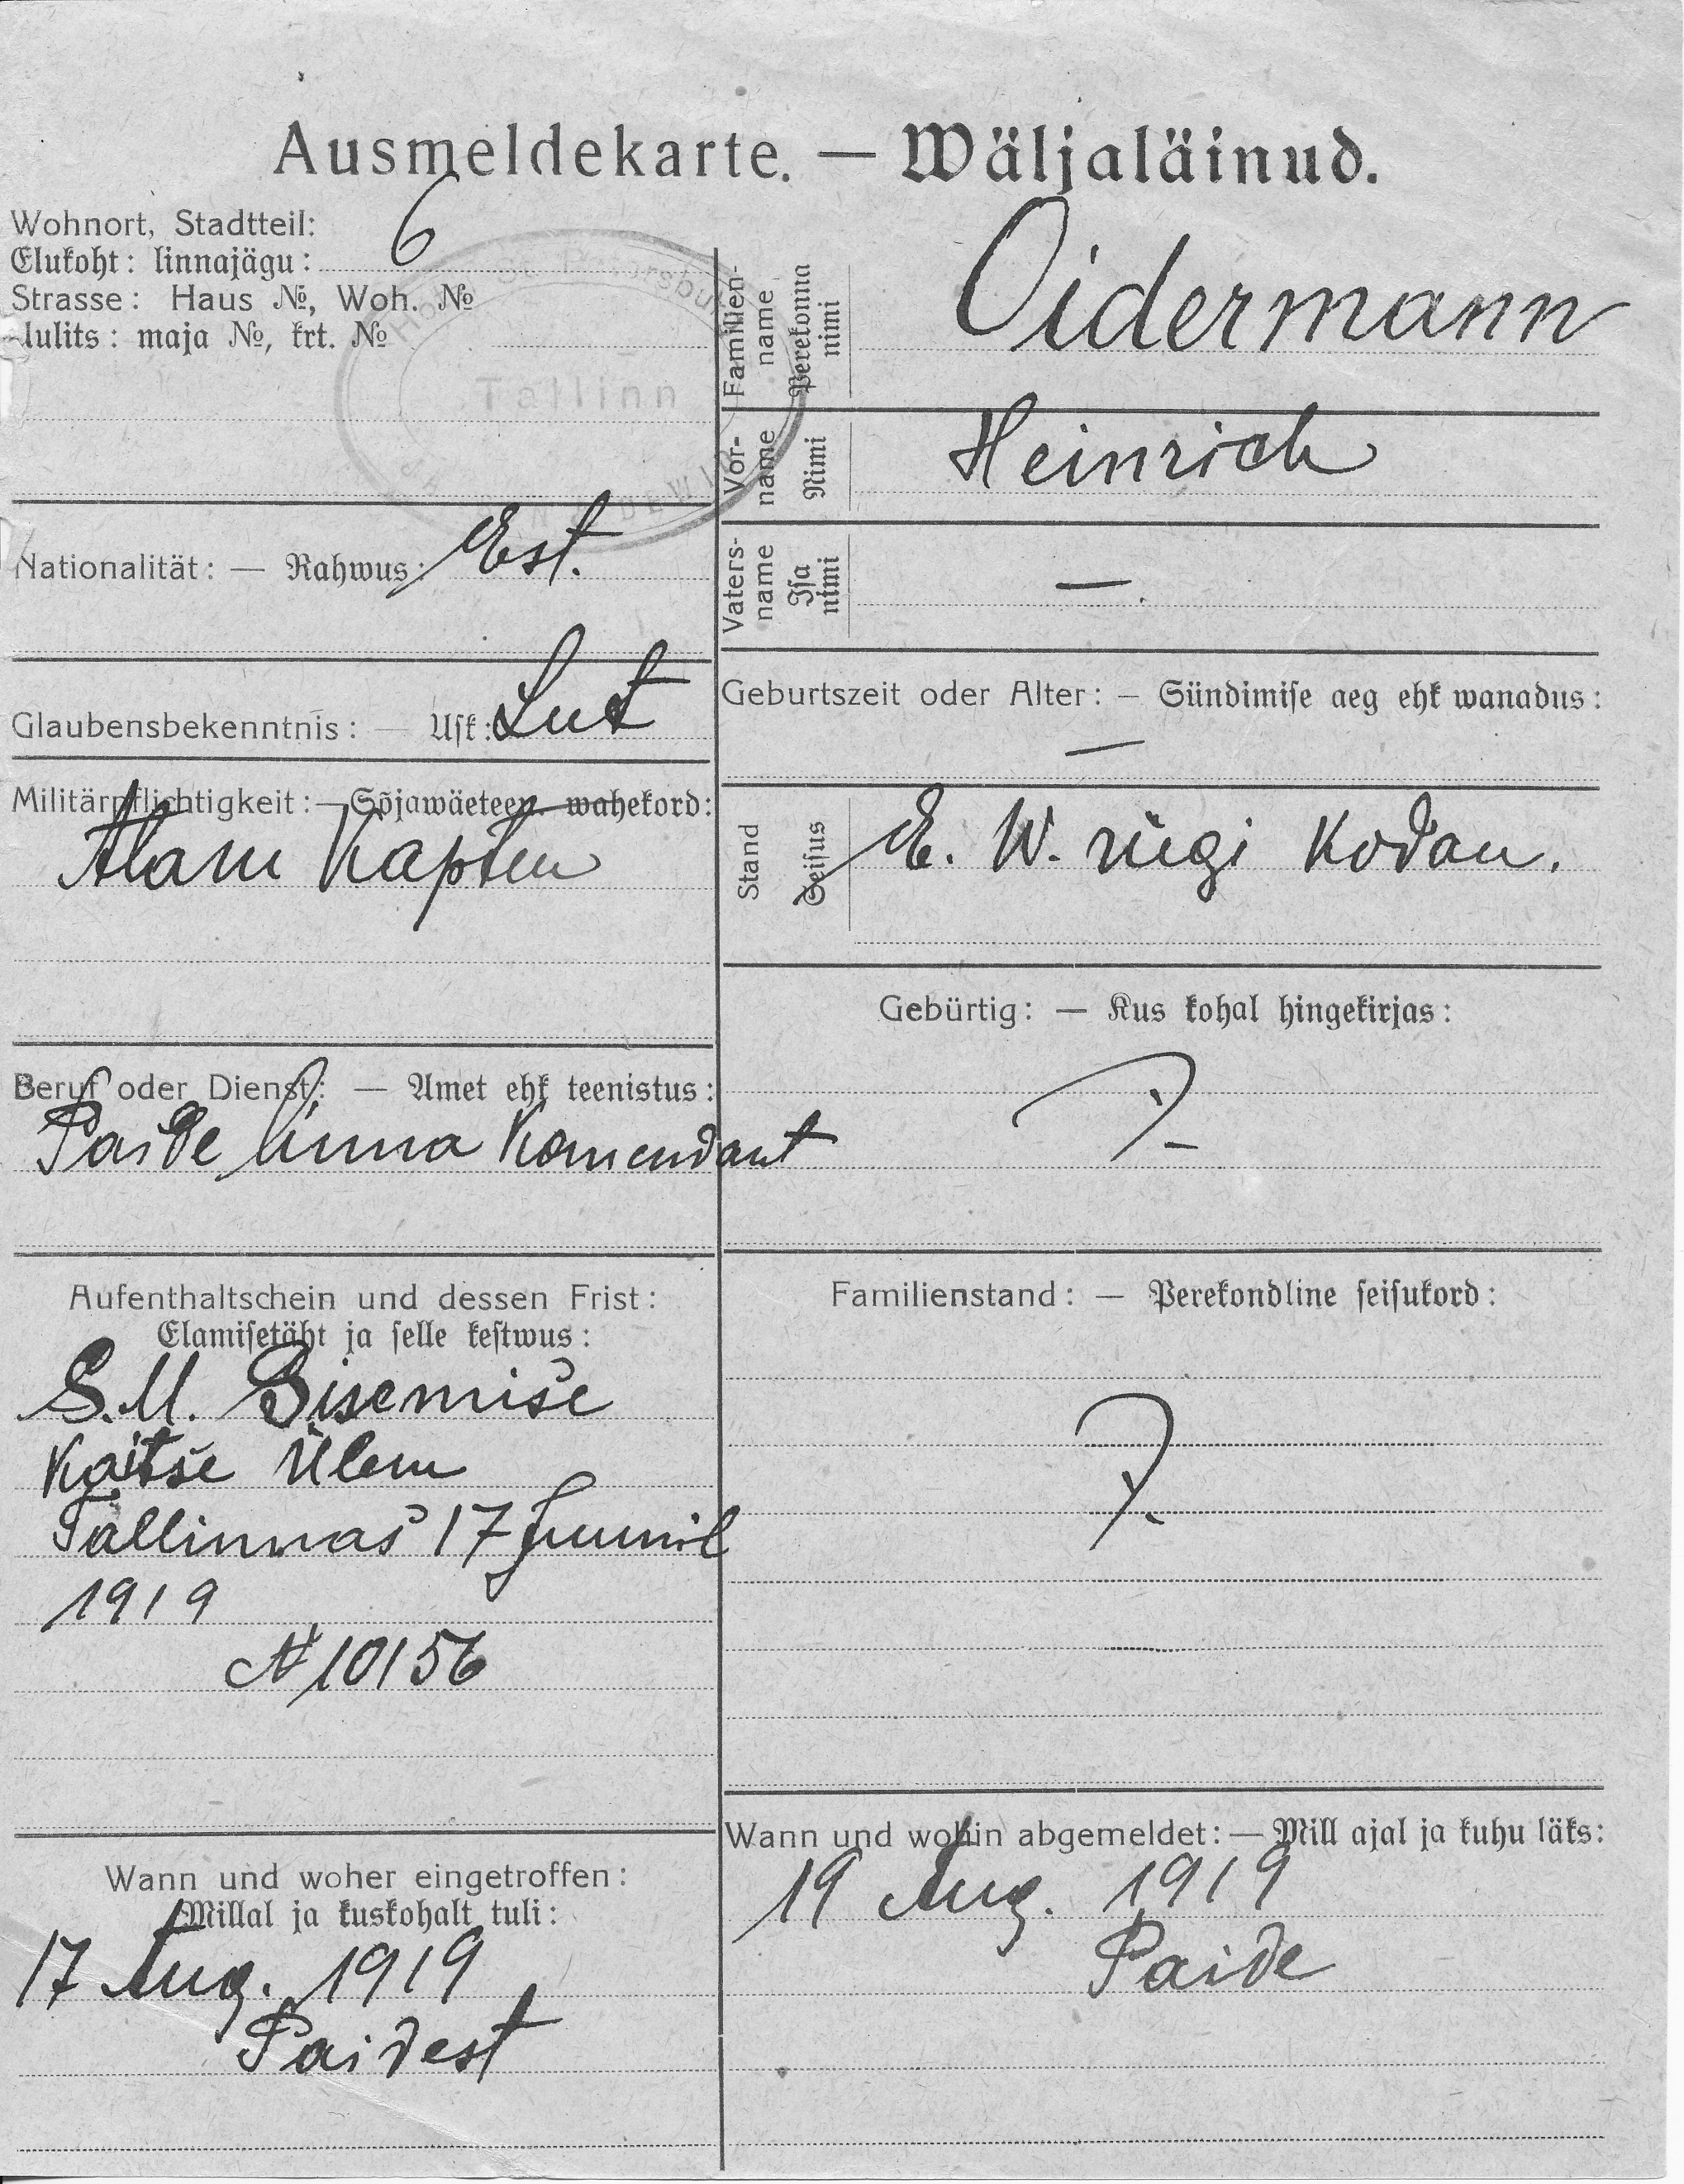 Ausmeldekarte. — Wäljaläinud.
Wohnort, Stadtteil:
Elukoht: linnajägu: 6
Strasse: Haus №, Woh. №
Uulits: maja №, krt. №
Hotel St. Petersburg
Tallinn
Nationalität: — Rahwus: Est.
Glaubensbekenntnis: — Usk: Lut
Militärpflichtigkeit: — Sõjawäeteen. wahekord:
Alam Kapten
Beruf oder Dienst: — Amet ehk teenistus:
Paide linna Komendant
Aufenthaltschein und dessen Frist:
Elamisetäht ja selle kestwus:
S.M. Sisemise
Kaitse Ülem
Tallinnas 17 Juunil
1919
№ 10156
Wann und woher eingetroffen:
Millal ja kuskohalt tuli:
17 Aug. 1919
Paidest
Familien-
name
Perekonna
nimi
Oidermann
Vor-
name
Nimi
Heinrich
Vaters-
name
Isa
nimi
—.
Geburtszeit oder Alter: — Sündimise aeg ehk wanadus:
—
Stand
Seisus
E. W. riigi Kodan.
Gebürtig: — Kus kohal hingekirjas:
?
Familienstand: — Perekondline seisukord:
?
Wann und wohin abgemeldet: — Mill ajal ja kuhu läks:
19 Aug. 1919
Paide